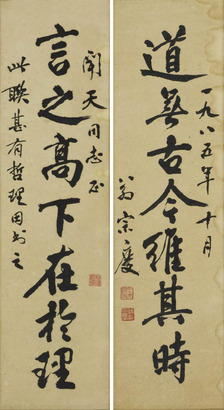 道無古今維其時
一九八五年十月
翁宗慶
言之高下在於理
聞天同志正
此联甚有哲理因书之